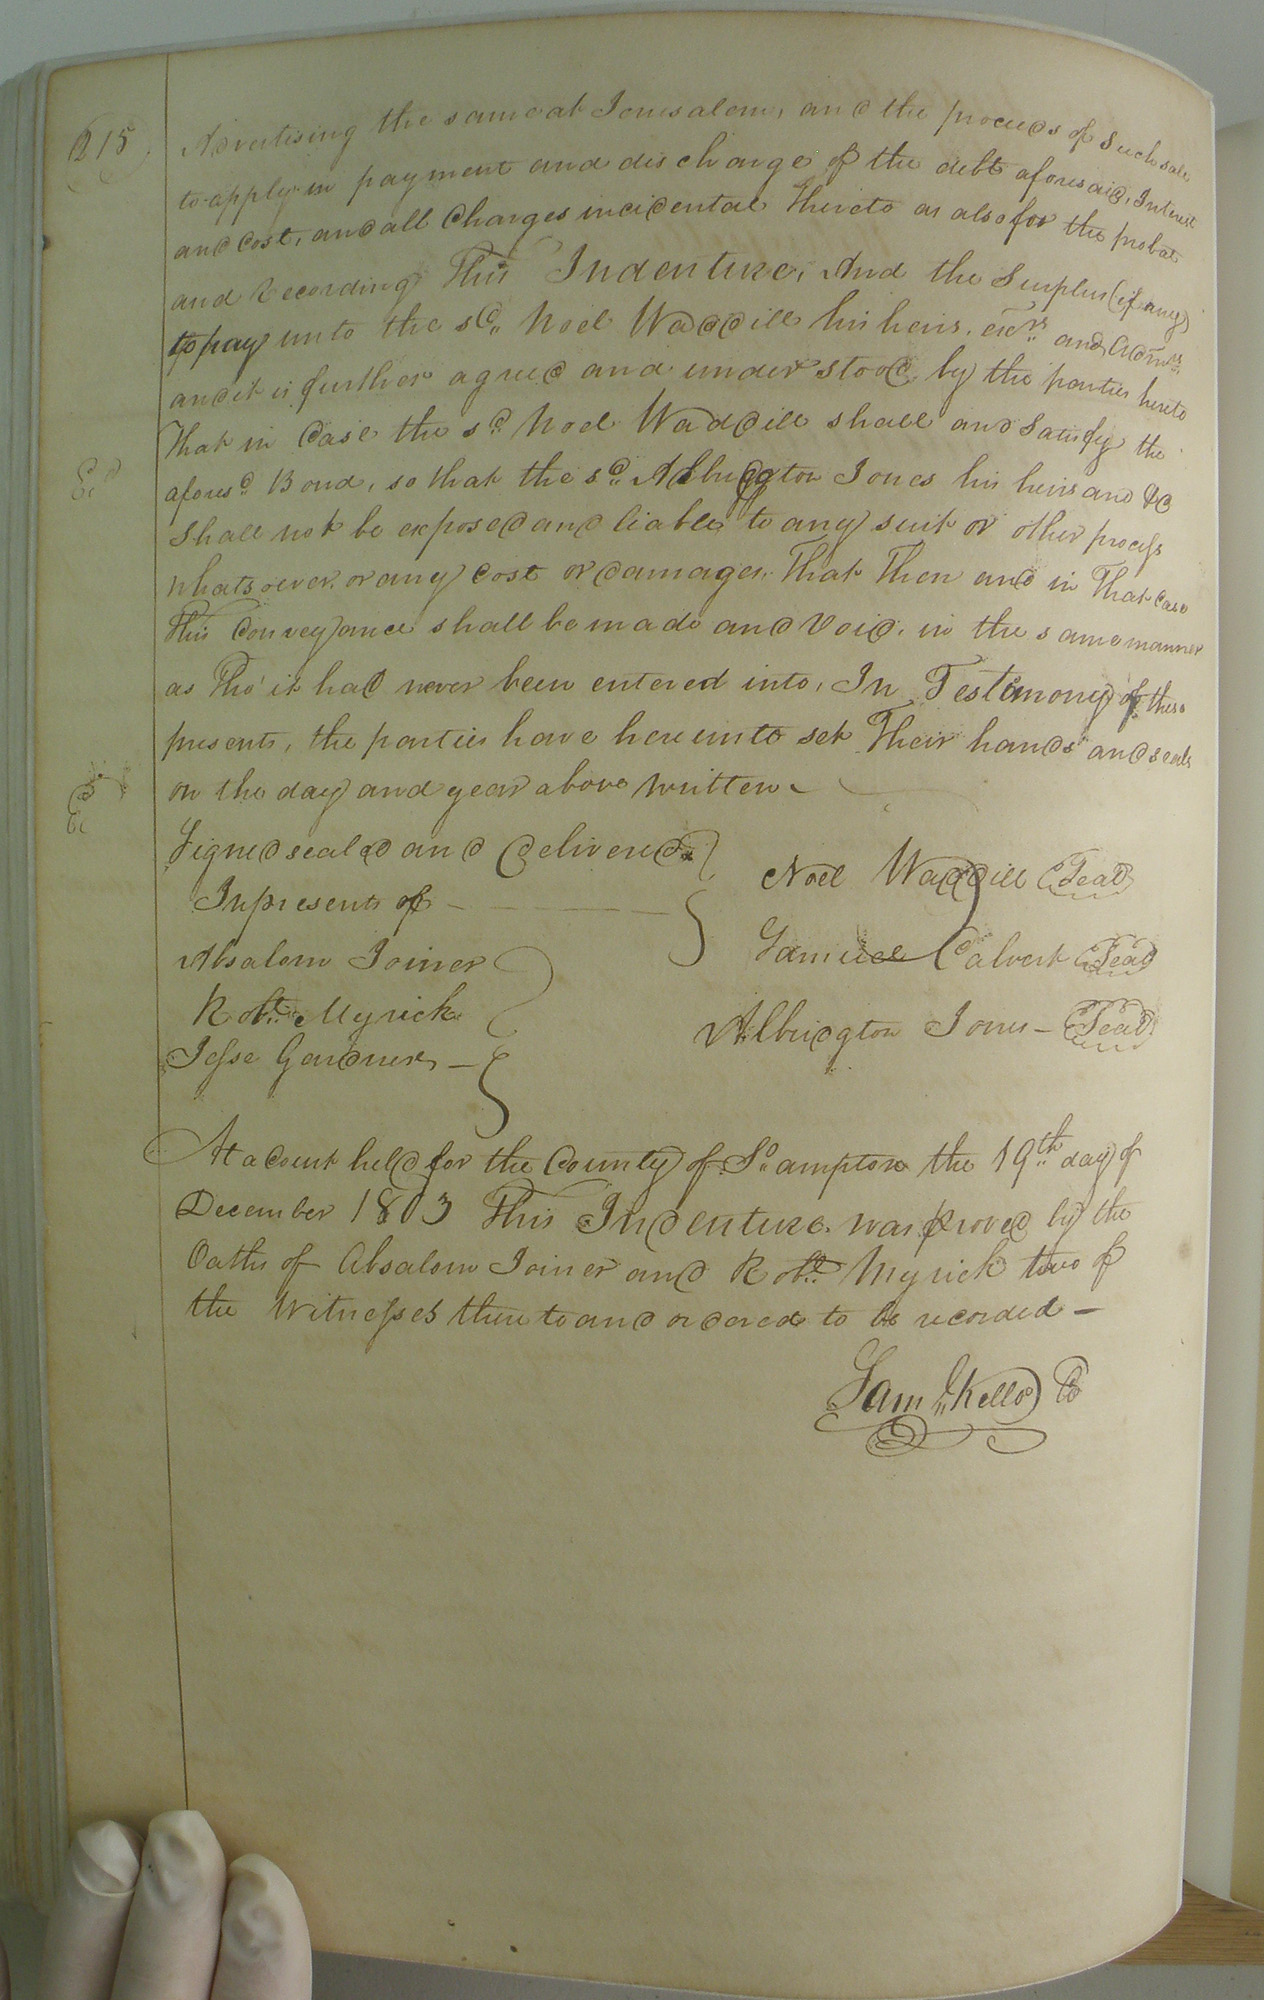 215
Advertising the same at Jerusalem, and the proceeds of such sale
to apply in payment and discharge of the debt aforesaid, Interest
and Cost, and all Charges incidental thereto as also for the probat
and Recording This Indenture, And the Surplus (if any)
to pay unto the sd. Noel Waddill his heirs, exrs. and Admrs.
and it is further agreed and understood by the parties hereto
That in Case the sd. Noel Waddill shall and Satisfy the
aforesd. Bond, so that the sd. Albridgton Jones his heirs and &c
Shall not be exposed and liable to any suit or other process
whatsoever or any Cost or damages. That Then and in That Case
This Conveyance shall be made and Void, in the same manner
as Tho' it had never been entered into, In Testimony of these
presents, the parties have hereunto set Their hands and seals
on the day and year above written
Signed sealed and delivered
In presents of
Noel Waddill Seal
Samuel Calvert Seal
Albridgton Jones Seal
Absalom Joiner
Robt. Myrick
Jesse Gardner
At a Court held for the County of So.ampton the 19th. day of
December 1803 This Indenture was proved by the
Oaths of Absalom Joiner and Robt. Myrick two of
the Witnesses thereto and ordered to be recorded
Saml. Kello Cc